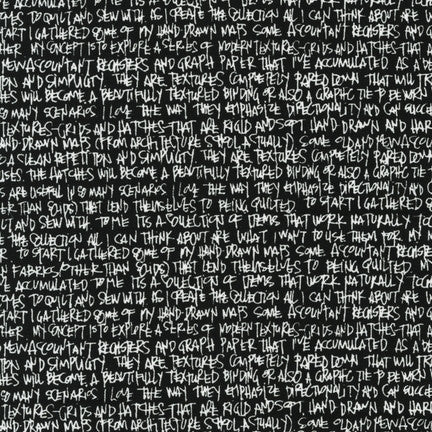 ACCUMULATED TO ME ITS A COLLECTION OF ITEMS THAT WORK NATURALLY
COMES TO QUILT AND SEW WITH AS I CREATE THE COLLECTION ALL I CAN THINK ABOUT ARE
START I GATHERED SOME OF MY HAND DRAWN MAPS SOME ACCOUNTANT REGISTERS AND
HER MY CONCEPT IS TO EXPLORE A SERIES OF MODERN TEXTURES-GRIDS AND HATCHES THAT
NEW ACCOUNTANT REGISTERS AND GRAPH PAPER THAT I'VE ACCUMULATED AS A
TION AND SIMPLICITY THEY ARE TEXTURES COMPLETELY PARED DOWN THAT WILL
HES WILL BECOME A BEAUTIFULLY TEXTURED BINDING OR ALSO A GRAPHIC TIE
SO MANY SCENARIOS I LOVE THE WAY THEY EMPHASIZE DIRECTIONALITY AND CAN
TEXTURES-GRIDS AND HATCHES THAT ARE RIGID AND SOFT, HAND DRAWN AND HARD
AND DRAWN MAPS (FROM ARCHITECTURE SCHOOL ACTUALLY) SOME OLD AND NEW ACCOUNT
E A CLEAN REPETITION AND SIMPLICITY THEY ARE TEXTURES COMPLETELY PARED DOWN
USES THE HATCHES WILL BECOME A BEAUTIFULLY TEXTURED BINDING OR ALSO A GRAPHIC
S ARE USEFUL IN SO MANY SCENARIOS I LOVE THE WAY THEY EMPHASIZE DIRECTIONALITY AND
ER THAN SOLIDS) THAT LEND THEMSELVES TO BEING QUILTED TO START I GATHERED
UT AND SEW WITH TO ME ITS A COLLECTION OF ITEMS THAT WORK NATURALLY
E THE COLLECTION ALL I CAN THINK ABOUT ARE WHAT I WANT TO USE THEM FOR MY
R TO START I GATHERED SOME OF MY HAND DRAWN MAPS SOME ACCOUNTANT REGISTERS
N FABRICS (OTHER THAN SOLIDS) THAT LEND THEMSELVES TO BEING QUILTED
VE ACCUMULATED TO ME ITS A COLLECTION OF ITEMS THAT WORK NATURALLY
COMES TO QUILT AND SEW WITH AS I CREATE THE COLLECTION ALL I CAN THINK ABOUT ARE
START I GATHERED SOME OF MY HAND DRAWN MAPS SOME ACCOUNTANT REGISTERS AND
HER MY CONCEPT IS TO EXPLORE A SERIES OF MODERN TEXTURES-GRIDS AND HATCHES THAT
NEW ACCOUNTANT REGISTERS AND GRAPH PAPER THAT I'VE ACCUMULATED AS A
TION AND SIMPLICITY THEY ARE TEXTURES COMPLETELY PARED DOWN THAT WILL
HES WILL BECOME A BEAUTIFULLY TEXTURED BINDING OR ALSO A GRAPHIC TIE
SO MANY SCENARIOS I LOVE THE WAY THEY EMPHASIZE DIRECTIONALITY AND CAN
TEXTURES-GRIDS AND HATCHES THAT ARE RIGID AND SOFT, HAND DRAWN AND HARD
AND DRAWN MAPS (FROM ARCHITECTURE SCHOOL ACTUALLY) SOME OLD AND NEW ACCOUNT